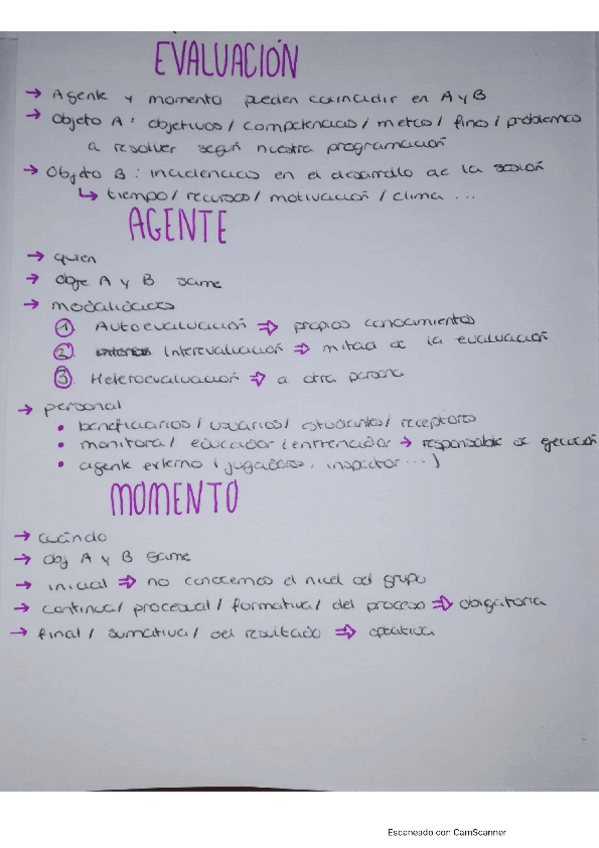 EVALUACIÓN
→ Agente y momento pueden coincidir en A y B
→ Objeto A: objetivos / competencias / metas / fines / problemas
a resolver según nuestra programación
→ Objeto B: incidencias en el desarrollo de la sesión
↳ tiempo / recursos / motivación / clima ...
AGENTE
→ quien
→ obje A y B same
→ modalidades
① Autoevaluación ⇒ propios conocimientos
② Interevaluación ⇒ mitad de la evaluación
③ Heteroevaluación ⇒ a otra persona
→ personal
• beneficiarios / usuarios / estudiantes / receptores
• monitora / educador / entrenador → responsable de ejecución
• agente externo (jugadores, inspector ...)
MOMENTO
→ cuándo
→ obj A y B same
→ inicial ⇒ no conocemos el nivel del grupo
→ continua / procesual / formativa / del proceso ⇒ obligatoria
→ final / sumativa / del resultado ⇒ optativa
Escaneado con CamScanner